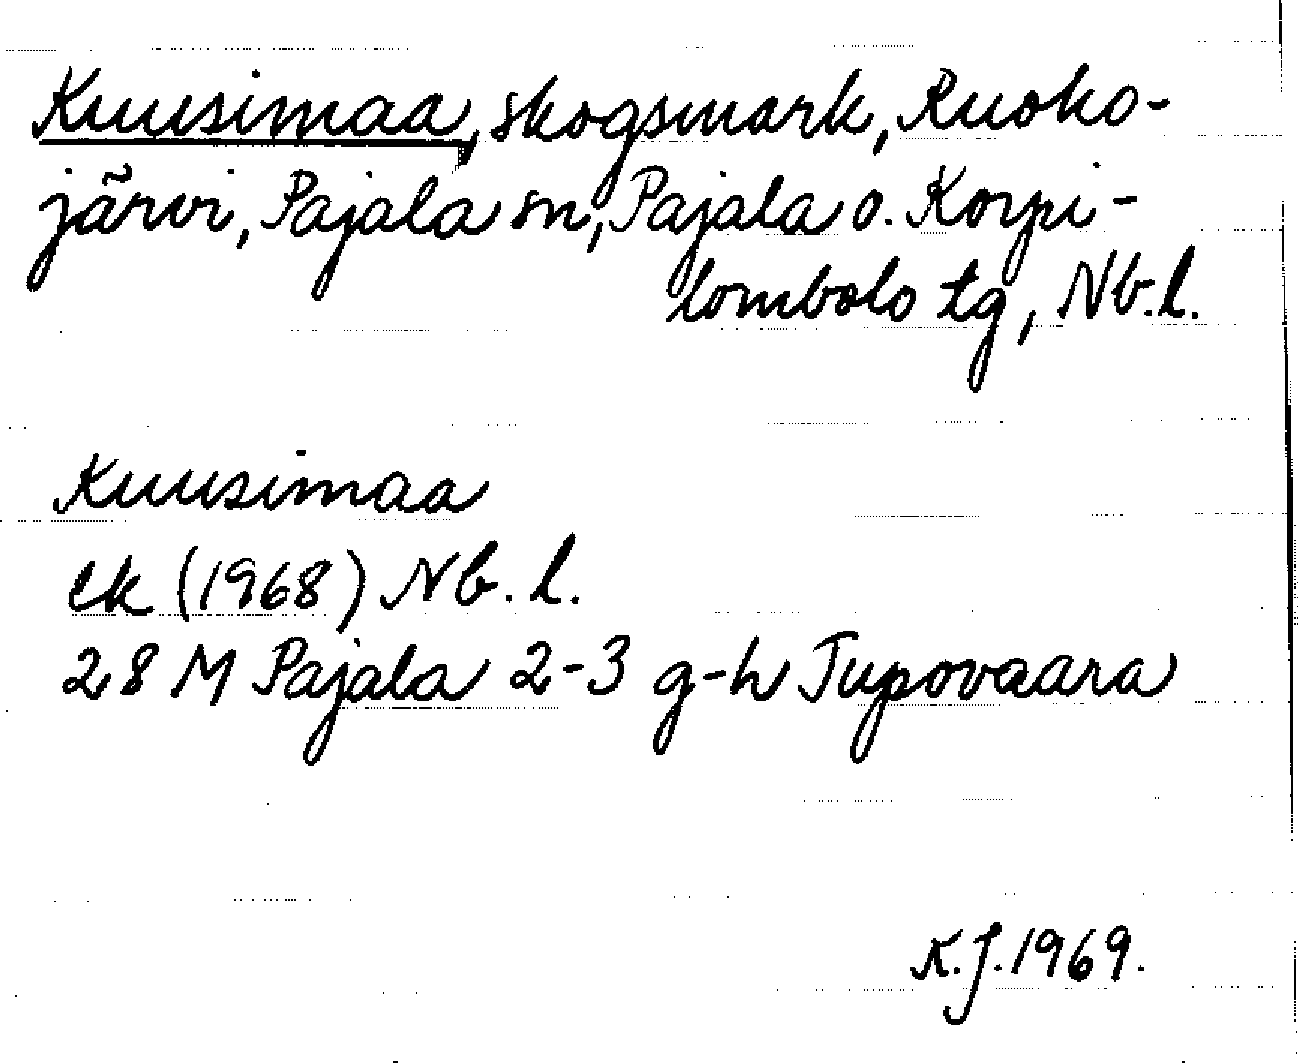 Kuusimaa, skogsmark, Ruoko-
järvi, Pajala sn, Pajala o. Korpi-
lombolo tg, Nb.l.
Kuusimaa
ek (1968) Nb.l.
28 M Pajala 2-3 g-h Jupovaara
K.J. 1969.